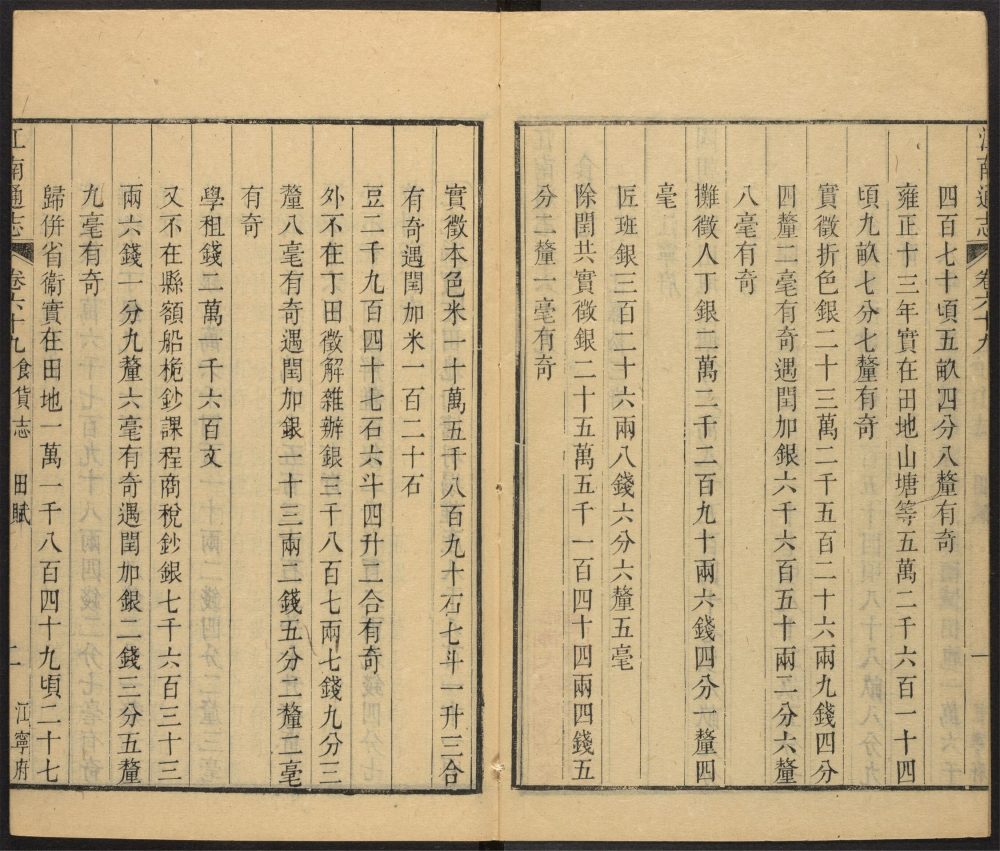 江南通志 卷六十九 一
四百七十頃五畝四分八釐有奇
雍正十三年實在田地山塘等五萬二千六百一十四
頃九畝七分七釐有奇
實徵折色銀二十三萬二千五百二十六兩九錢四分
四釐二毫有奇遇閏加銀六千六百五十兩二分六釐
八毫有奇
攤徵人丁銀二萬二千二百九十兩六錢四分一釐四
毫
匠班銀三百二十六兩八錢六分六釐五毫
除閏共實徵銀二十五萬五千一百四十四兩四錢五
分二釐一毫有奇
實徵本色米一十萬五千八百九十石七斗一升三合
有奇遇閏加米一百二十石
豆二千九百四十七石六斗四升二合有奇
外不在丁田徵解雜辦銀三千八百七兩七錢九分三
釐八毫有奇遇閏加銀一十三兩二錢五分二釐二毫
有奇
學租錢二萬一千六百文
又不在縣額船桅鈔課程商稅鈔銀七千六百三十三
兩六錢一分九釐六毫有奇遇閏加銀二錢三分五釐
九毫有奇
歸併省衛實在田地一萬一千八百四十九頃二十七
江南通志 卷六十九 食貨志 田賦 二 江寧府